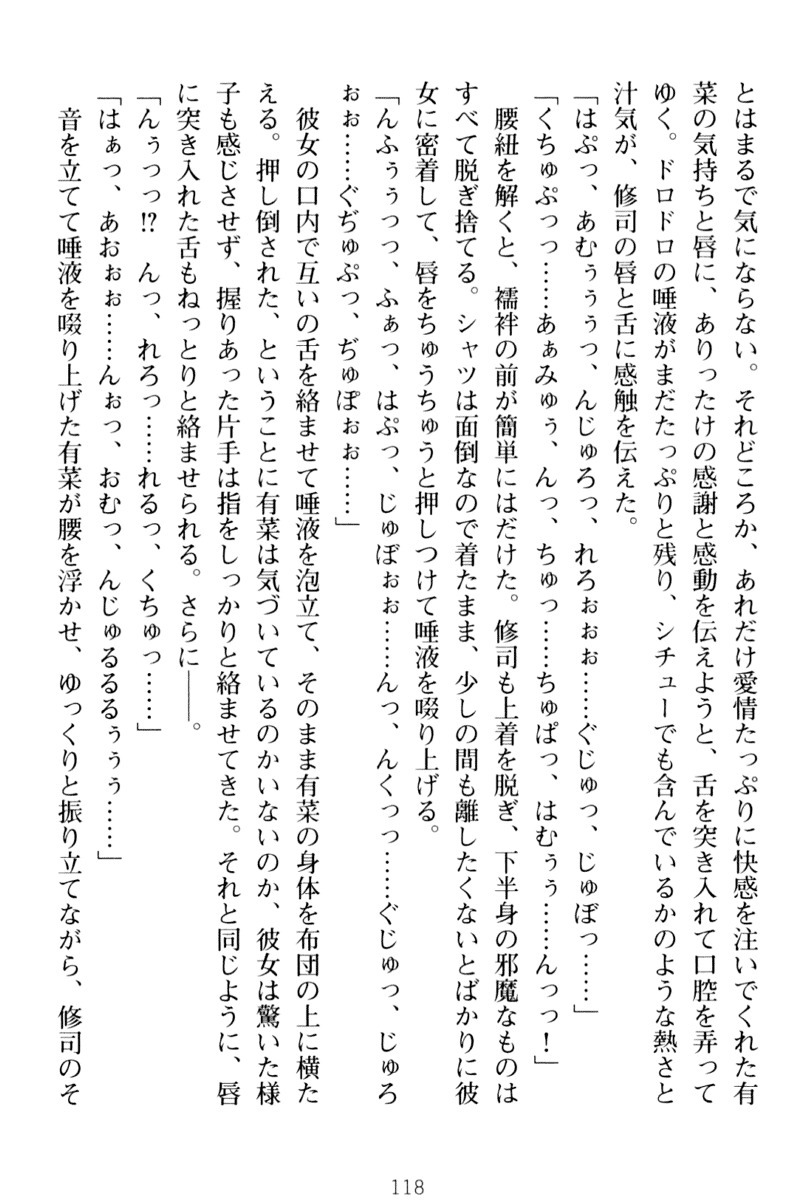 とはまるで気にならない。それどころか、あれだけ愛情たっぷりに快感を注いでくれた有
菜の気持ちと唇に、ありったけの感謝と感動を伝えようと、舌を突き入れて口腔を弄って
ゆく。ドロドロの唾液がまだたっぷりと残り、シチューでも含んでいるかのような熱さと
汁気が、修司の唇と舌に感触を伝えた。
「はぷっ、あむぅぅぅっ、んじゅろっ、れろぉぉぉ……ぐじゅっ、じゅぼっ……」
「くちゅぷっっ……あぁみゅぅ、んっ、ちゅっ……ちゅぱっ、はむぅぅ……んっっ！」
腰紐を解くと、襦袢の前が簡単にはだけた。修司も上着を脱ぎ、下半身の邪魔なものは
すべて脱ぎ捨てる。シャツは面倒なので着たまま、少しの間も離したくないとばかりに彼
女に密着して、唇をちゅうちゅうと押しつけて唾液を啜り上げる。
「んふぅぅっっ、ふぁっ、はぷっ、じゅぼぉぉ……んっ、んくっっ……ぐじゅっ、じゅろ
ぉぉ……ぐぢゅぷっ、ぢゅぽぉぉ……」
彼女の口内で互いの舌を絡ませて唾液を泡立て、そのまま有菜の身体を布団の上に横た
える。押し倒された、ということに有菜は気づいているのかいないのか、彼女は驚いた様
子も感じさせず、握りあった片手は指をしっかりと絡ませてきた。それと同じように、唇
に突き入れた舌もねっとりと絡ませられる。さらに――。
「んぅっっ!?　んっ、れろっ……れるっ、くちゅっ……」
「はぁっ、あおぉぉ……んぉっ、おむっ、んじゅるるるぅぅぅ……」
音を立てて唾液を啜り上げた有菜が腰を浮かせ、ゆっくりと振り立てながら、修司のそ
118